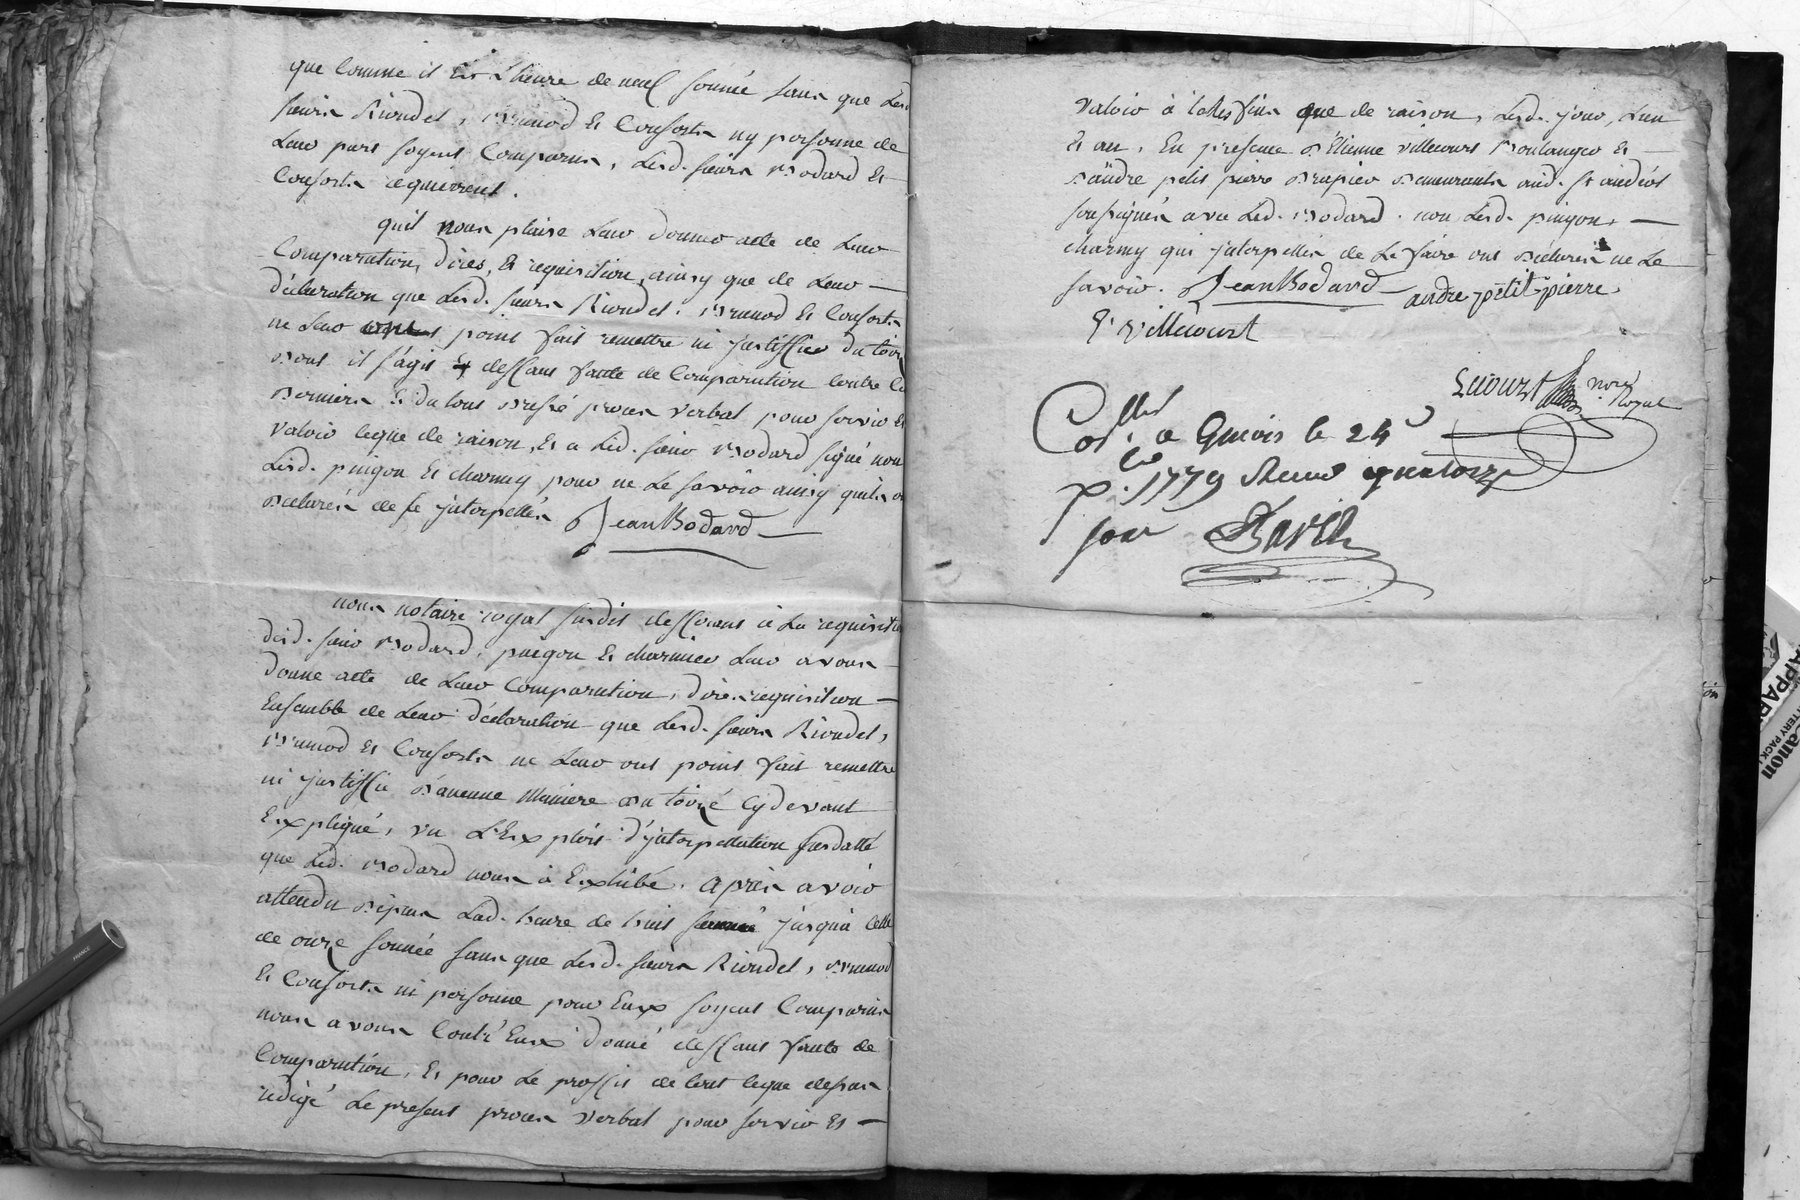 que Comme il Est L'heure de neuf sonnée sans que Lesd
sieurs Rioudel, Brunod Et Consorts ny personne de
Leur part soyent Comparus, Lesd. sieurs Bodard Et
Consorts requièrent.
quil nous plaise Leur donner acte de Leur
Comparution, dires, Et requisition, ainsy que de Leur
déclaration que Lesd. sieurs Rioudel, Brunod Et Consorts
ne Leur ont point fait remettre ni justiffier du
Dont il s'agit Et deffaut faute de Comparution Contre Ces
Derniers Et du tout Dressé procès verbal pour servir Et
valoir Ceque de raison, Et a Led. sieur Bodard signé non
Lesd. pingon Et charmy pour ne Le savoir ainsy quils on
Déclarés de ce jnterpellés JeanBodard
nous notaire royal susdit defferant à La requisition
desd. sieur Bodard, pingon Et charmier Leur avons
donné acte de Leur Comparution, dire, requisition
Ensemble de Leur déclaration que Lesd. sieurs Rioudel,
Brunod Et Consorts ne Leur ont point fait remettre
ni justiffié D'aucune Maniere du Cydevant
Expliqué, vu L'Exploit d'jnterpellation susdatté
que Led. Bodard nous à Exhibé. Après avoir
attendu Depuis Lad. heure de huit jusqu'à Celle
de onze sonnée sans que Lesd. sieurs Rioudel, Brunod
Et Consorts ni personne pour Eux soyent Comparus
nous avons Contr'Eux donné deffaut faute de
Comparution, Et pour Le proffit de tout Ceque dessus
rédigé Le present procès verbal pour servir Et
valoir à telles fins que de raison, Lesd. jour, Lieu
Et an, En presence D'Etienne villecourt Boulanger Et
D'andré petit pierre Drapier Demeurants aud. St andéol
soussignés avec Led. Bodard. non Lesd. pingon,
charmy qui jnterpellés de Le faire ont Déclarés ne Le
savoir. JeanBodard andre petit pierre
E villecourt
Lecourt nore Royal
Conllé a Givois le 24
1779 Reçu quatorze
sous David
FRANCE
Canon
BATTERY PACK